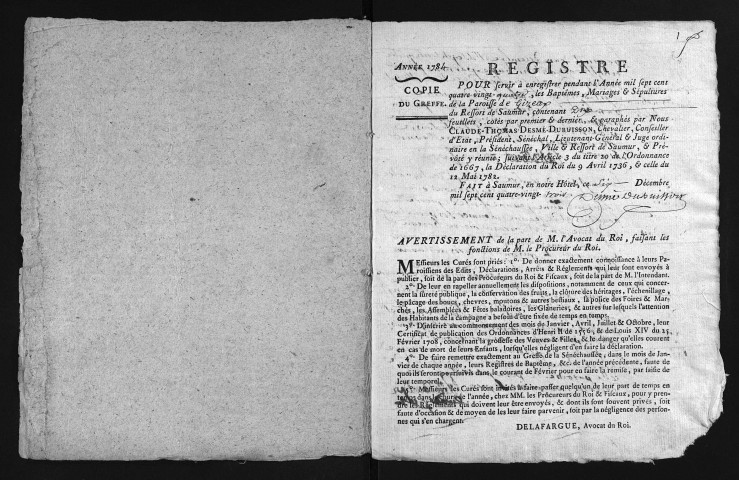 1
ANNÉE 1784
COPIE
DU GREFFE.
REGISTRE
POUR servir à enregistrer pendant l'Année mil sept cent
quatre-vingt-quatre, les Baptêmes, Mariages & Sépultures
de la Paroisse de Gizeux
du Ressort de Saumur, contenant Dix
feuillets, cotés par premier & dernier, & paraphés par Nous
CLAUDE-THOMAS DESMÉ-DUBUISSON, Chevalier, Conseiller
d'Etat, Président, Sénéchal, Lieutenant-Général & Juge ordi-
naire en la Sénéchaussée, Ville & Ressort de Saumur, & Pré-
vôté y réunie; suivant l'Article 3 du titre 20 de l'Ordonnance
de 1667, la Déclaration du Roi du 9 Avril 1736, & celle du
12 Mai 1782.
FAIT à Saumur, en notre Hôtel, ce Six Décembre
mil sept cent quatre-vingt trois
Desmé Dubuisson
AVERTISSEMENT de la part de M. l'Avocat du Roi, faisant les
fonctions de M. le Procureur du Roi.
Messieurs les Curés sont priés: 1°. De donner exactement connoissance à leurs Pa-
roissiens des Edits, Déclarations, Arrêts & Réglements qui leur sont envoyés à
publier, soit de la part des Procureurs du Roi & Fiscaux, soit de la part de M. l'Intendant.
2°. De leur en rappeller annuellement les dispositions, notamment de ceux qui concer-
nent la sûreté publique, la conservation des fruits, la clôture des héritages, l'échenillage,
le pacage des boucs, chevres, moutons & autres bestiaux, la police des Foires & Mar-
chés, les Assemblées & Fêtes baladoires, les Glâneries, & autres sur lesquels l'attention
des Habitants de la campagne a besoin d'être fixée de temps en temps.
3°. D'inscrire au commencement des mois de Janvier, Avril, Juillet & Octobre, leur
Certificat de publication des Ordonnances d'Henri II de 1556, & de Louis XIV du 25
Février 1708, concernant la grossesse des Veuves & Filles, & le danger qu'elles courent
en cas de mort de leurs Enfants, lorsqu'elles négligent d'en faire la déclaration.
4°. De faire remettre exactement au Greffe de la Sénéchaussée, dans le mois de Jan-
vier de chaque année, leurs Registres de Baptême, &c. de l'année précédente, faute de
quoi ils seront poursuivis dans le courant de Février pour en faire la remise, par saisie de
leur temporel.
5°. Messieurs les Curés sont invités à faire passer quelqu'un de leur part de temps en
temps dans le cours de l'année, chez MM. les Procureurs du Roi & Fiscaux, pour y pren-
dre les Réglements qui doivent leur être envoyés, & dont ils sont souvent privés, soit
faute d'occasion & de moyen de les leur faire parvenir, soit par la négligence des person-
nes qui s'en chargent.
DELAFARGUE, Avocat du Roi.